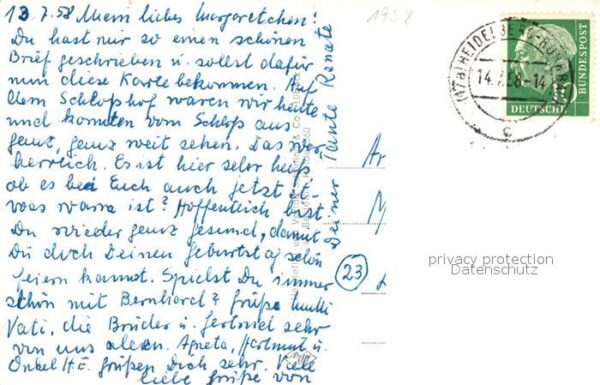 13.7.58 Mein liebes Margaretchen!
Du hast mir so einen schönen
Brief geschrieben u. sollst dafür
nun diese Karte bekommen. Auf
dem Schloßhof waren wir heute
und konnten vom Schloß aus
ganz, ganz weit sehen. Das war
herrlich. Es ist hier sehr heiß,
ob es bei Euch auch jetzt et-
was warm ist? Hoffentlich bist
Du wieder ganz gesund, damit
Du doch Deinen Geburtstag schön
feiern kannst. Spielst Du immer
schön mit Bernhard? Grüße Mutti
Vati, die Brüder u. Gertrud sehr
von uns allen. Agneta, Hartmut u.
Onkel H.E. grüßen Dich sehr. Viele
liebe Grüße von
Deiner Tante Renate
1958
(17a) HEIDELBERG
14.7.58-14
c
10
DEUTSCHE
BUNDESPOST
23
privacy protection
Datenschutz